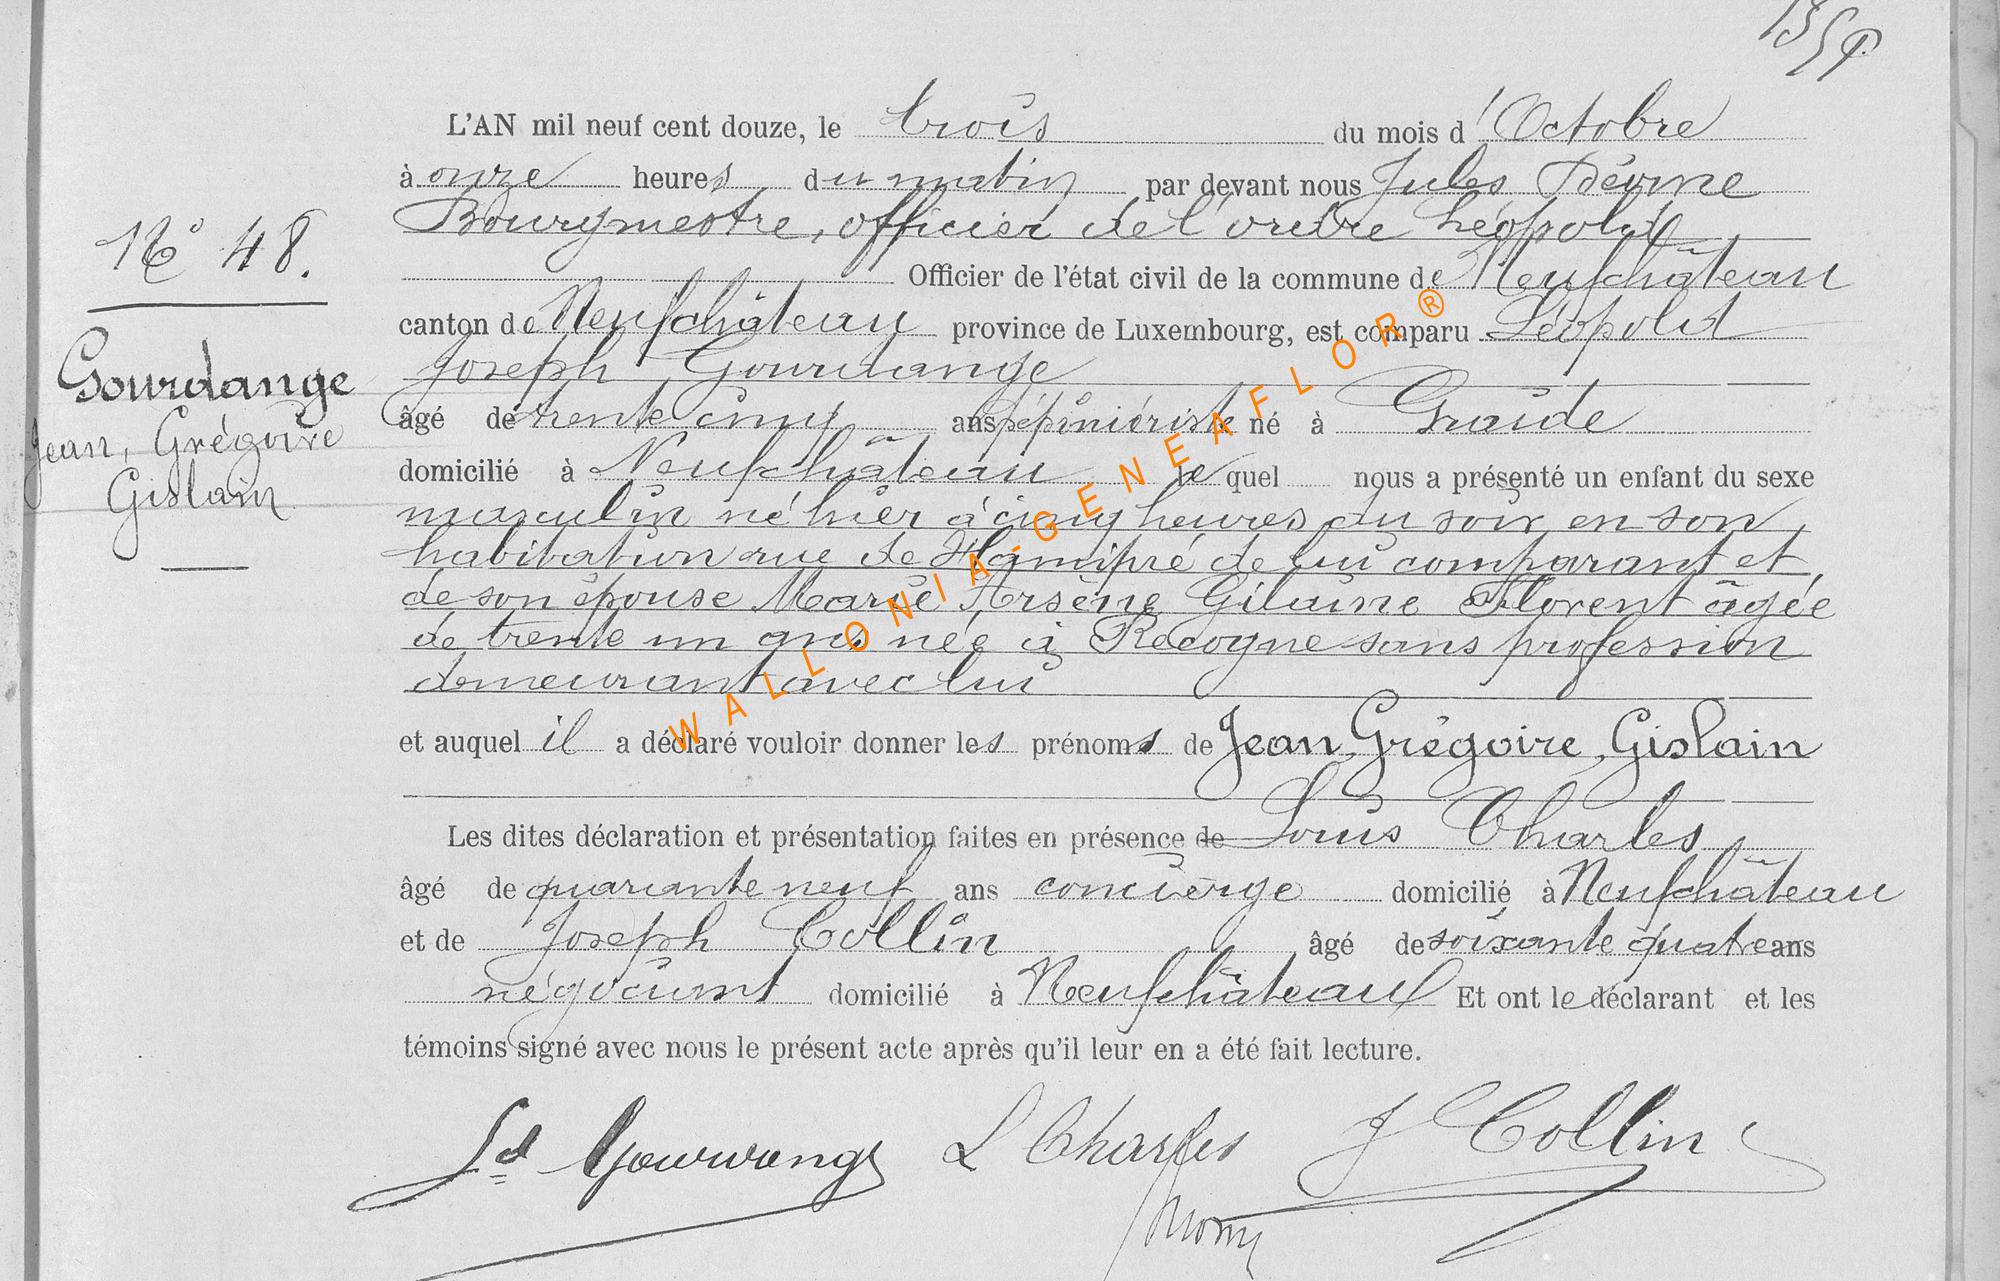 N° 48.
Gourdange
Jean, Grégoire
Gislain
L'AN mil neuf cent douze, le trois du mois d'Octobre
à onze heures du matin par devant nous Jules
Bourgmestre, officier de l'ordre Léopold
Officier de l'état civil de la commune de Neufchâteau
canton de Neufchâteau province de Luxembourg, est comparu Léopold
Joseph Gourdange
âgé de trente cinq ans pépiniériste né à Graide
domicilié à Neufchâteau lequel nous a présenté un enfant du sexe
masculin né hier à cinq heures du soir en son
habitation rue de Hamipré de lui comparant et
de son épouse Marie Arsène Gilaine Florent âgée
de trente un ans née à Recogne sans profession
demeurant avec lui
et auquel il a déclaré vouloir donner les prénoms de Jean, Grégoire, Gislain
Les dites déclaration et présentation faites en présence de Louis Charles
âgé de quarante neuf ans concierge domicilié à Neufchâteau
et de Joseph Collin âgé de soixante quatre ans
négociant domicilié à Neufchâteau Et ont le déclarant et les
témoins signé avec nous le présent acte après qu'il leur en a été fait lecture.
Ld Gourdange L Charles J Collin
WALLONIA-GENEAFLOR®